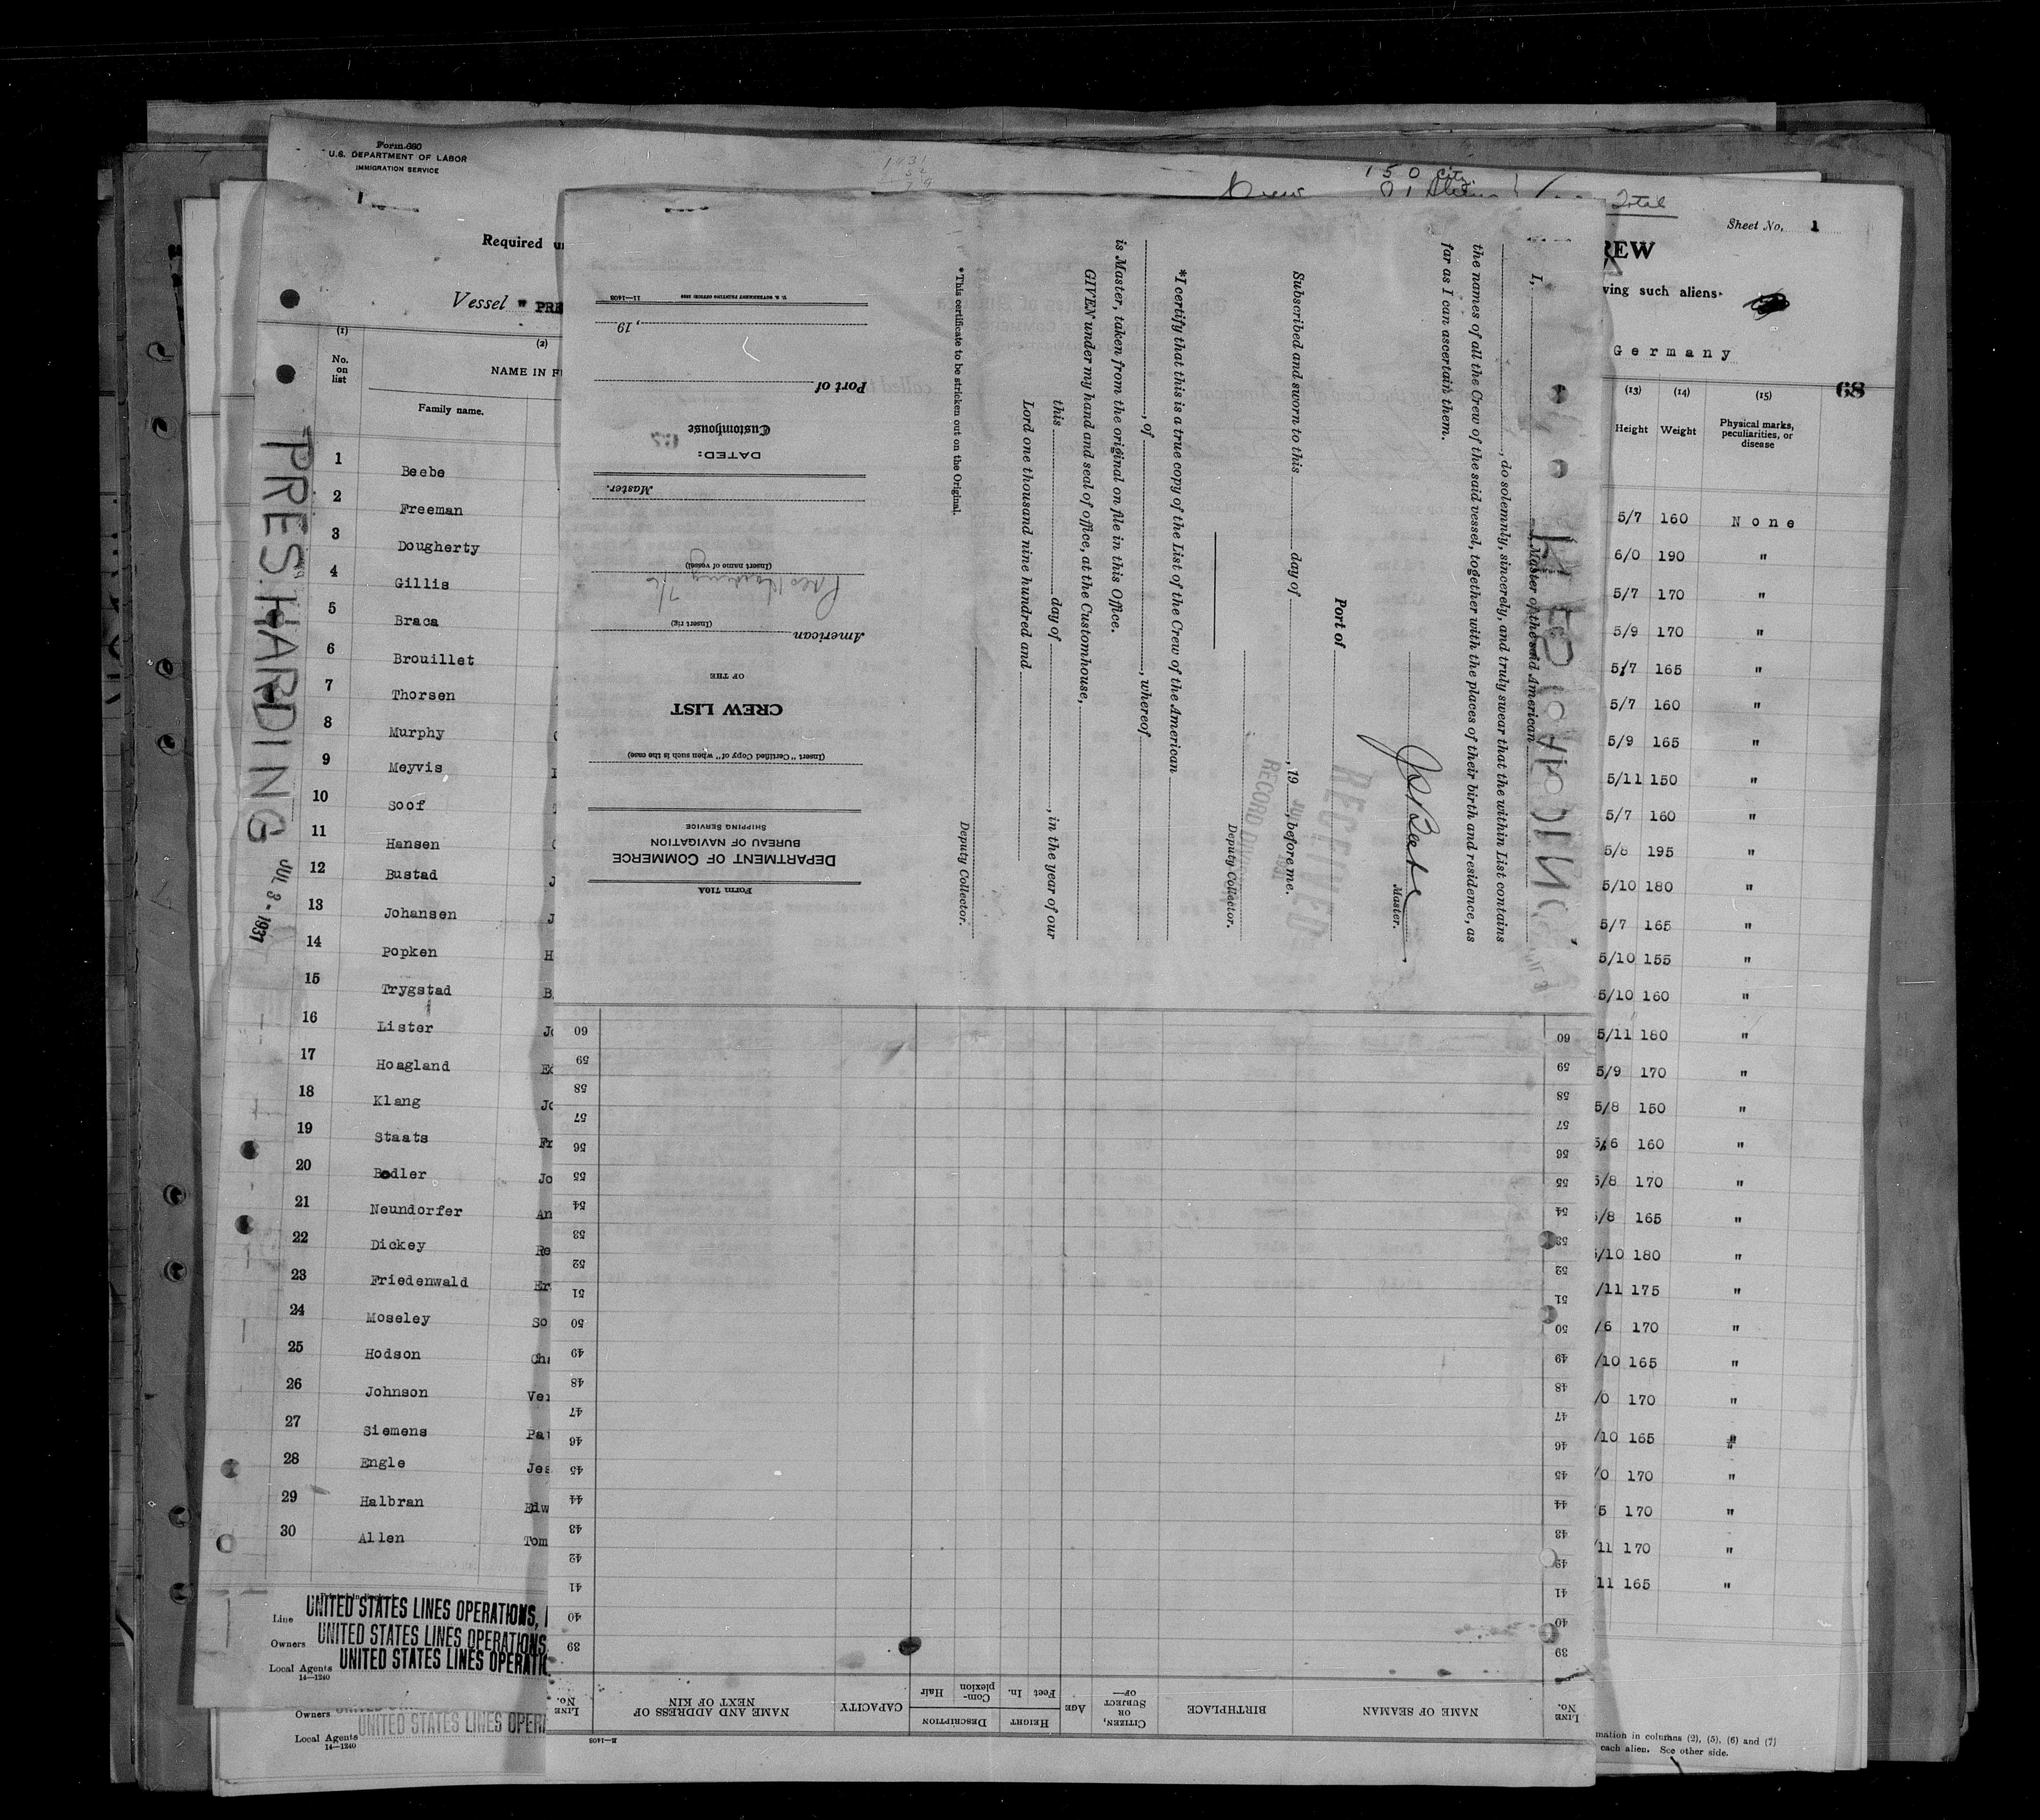 Form 680
U.S. DEPARTMENT OF LABOR
IMMIGRATION SERVICE
1431
150 city
Total
Sheet No. 1
REW
Required u
ving such aliens
Vessel " PRE
Germany
68
(1)
(2)
(13) (14) (15)
No. on list
NAME IN F
Family name.
Height Weight Physical marks, peculiarities, or disease
PRES. HARDING JUL 3 - 1931
1 Beebe
2 Freeman
3 Dougherty
4 Gillis
5 Braca
6 Brouillet
7 Thorsen
8 Murphy
9 Meyvis
10 Soof
11 Hansen
12 Bustad J
13 Johansen J
14 Popken H
15 Trygstad B
16 Lister Jo
17 Hoagland Ed
18 Klang Jo
19 Staats Fr
20 Bodler Jo
21 Neundorfer An
22 Dickey Re
23 Friedenwald Er
24 Moseley So
25 Hodson Cha
26 Johnson Ver
27 Siemens Pat
28 Engle Jes
29 Halbran Edw
30 Allen Tom
5/7 160 None
6/0 190 "
5/7 170 "
5/9 170 "
5/7 165 "
5/7 160 "
5/9 165 "
5/11 150 "
5/7 160 "
5/8 195 "
5/10 180 "
5/7 165 "
5/10 155 "
5/10 160 "
5/11 180 "
5/9 170 "
5/8 150 "
5/6 160 "
5/8 170 "
/8 165 "
/10 180 "
/11 175 "
/6 170 "
/10 165 "
/0 170 "
/10 165 "
/0 170 "
5 170 "
/11 170 "
11 165 "
Line UNITED STATES LINES OPERATIONS,
Owners UNITED STATES LINES OPERATIONS
Local Agents UNITED STATES LINES OPERATIO
14—1240
Owners
Local Agents UNITED STATES LINES OPER
14—1240
mation in columns (2), (5), (6) and (7)
each alien. See other side.
I, , Master of the said American
, do solemnly, sincerely, and truly swear that the within List contains
the names of all the Crew of the said vessel, together with the places of their birth and residence, as
far as I can ascertain them.
Master.
Port of
RECEIVED
RECORD DIV
Subscribed and sworn to this day of , 19 , before me.
Deputy Collector.
*I certify that this is a true copy of the List of the Crew of the American
, of , whereof
is Master, taken from the original on file in this Office.
GIVEN under my hand and seal of office, at the Customhouse,
this day of , in the year of our
Lord one thousand nine hundred and
Deputy Collector.
*This certificate to be stricken out on the Original.
Form 710A
DEPARTMENT OF COMMERCE
BUREAU OF NAVIGATION
SHIPPING SERVICE
(Insert "Certified Copy of" when such is the case)
CREW LIST
OF THE
American
(Insert rig)
Pres Harding 7/6
(Insert name of vessel)
Master.
DATED:
Customhouse
Port of
, 19
11—1408 U. S. GOVERNMENT PRINTING OFFICE
11—1408
LINE No.
NAME OF SEAMAN
BIRTHPLACE
CITIZEN, OR SUBJECT OF—
AGE
HEIGHT
Feet In.
DESCRIPTION
Com-plexion Hair
CAPACITY
NAME AND ADDRESS OF NEXT OF KIN
LINE No.
39 39
40 40
41 41
42 42
43 43
44 44
45 45
46 46
47 47
48 48
49 49
50 50
51 51
52 52
53 53
54 54
55 55
56 56
57 57
58 58
59 59
60 60